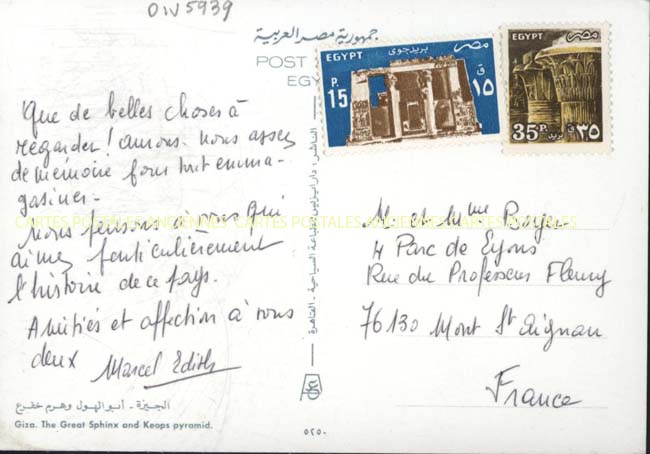 OIV5939
جمهورية مصر العربية
POST
EGY
EGYPT
مصر
بريد جوى
P. 15
ق ١٥
EGYPT
مصر
35P
ق ٣٥
بريد
Que de belles choses à
regarder! aurons-nous assez
de mémoire pour tout emma-
gasiner.
Nous pensons à vous qui
aimez particulièrement
l'histoire de ce pays.
Amitiés et affection à vous
deux Marcel Edith
CARTES POSTALES ANCIENNES CARTES POSTALES ANCIENNES CARTES POSTALES
M. et Mme
4 Parc de Lyons
Rue du Professeur Fleury
76130 Mont St Aignan
France
الجيزة - أبو الهول وهرم خفرع
Giza. The Great Sphinx and Keops pyramid.
٥٢٥٠